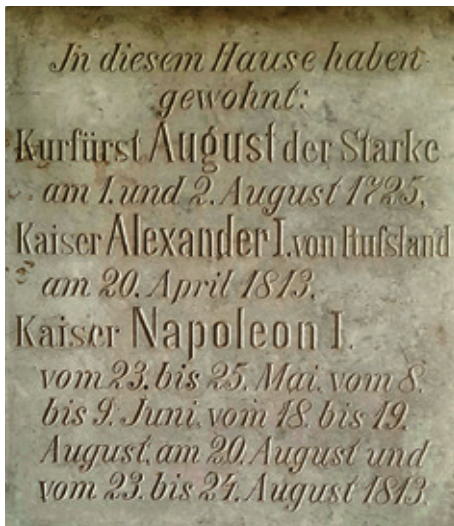 In diesem Hause haben
gewohnt:
Kurfürst August der Starke
am 1. und 2. August 1725,
Kaiser Alexander I. von Rufsland
am 20. April 1813,
Kaiser Napoleon I.
vom 23. bis 25. Mai, vom 8.
bis 9. Juni, vom 18. bis 19.
August, am 20. August und
vom 23. bis 24. August 1813.